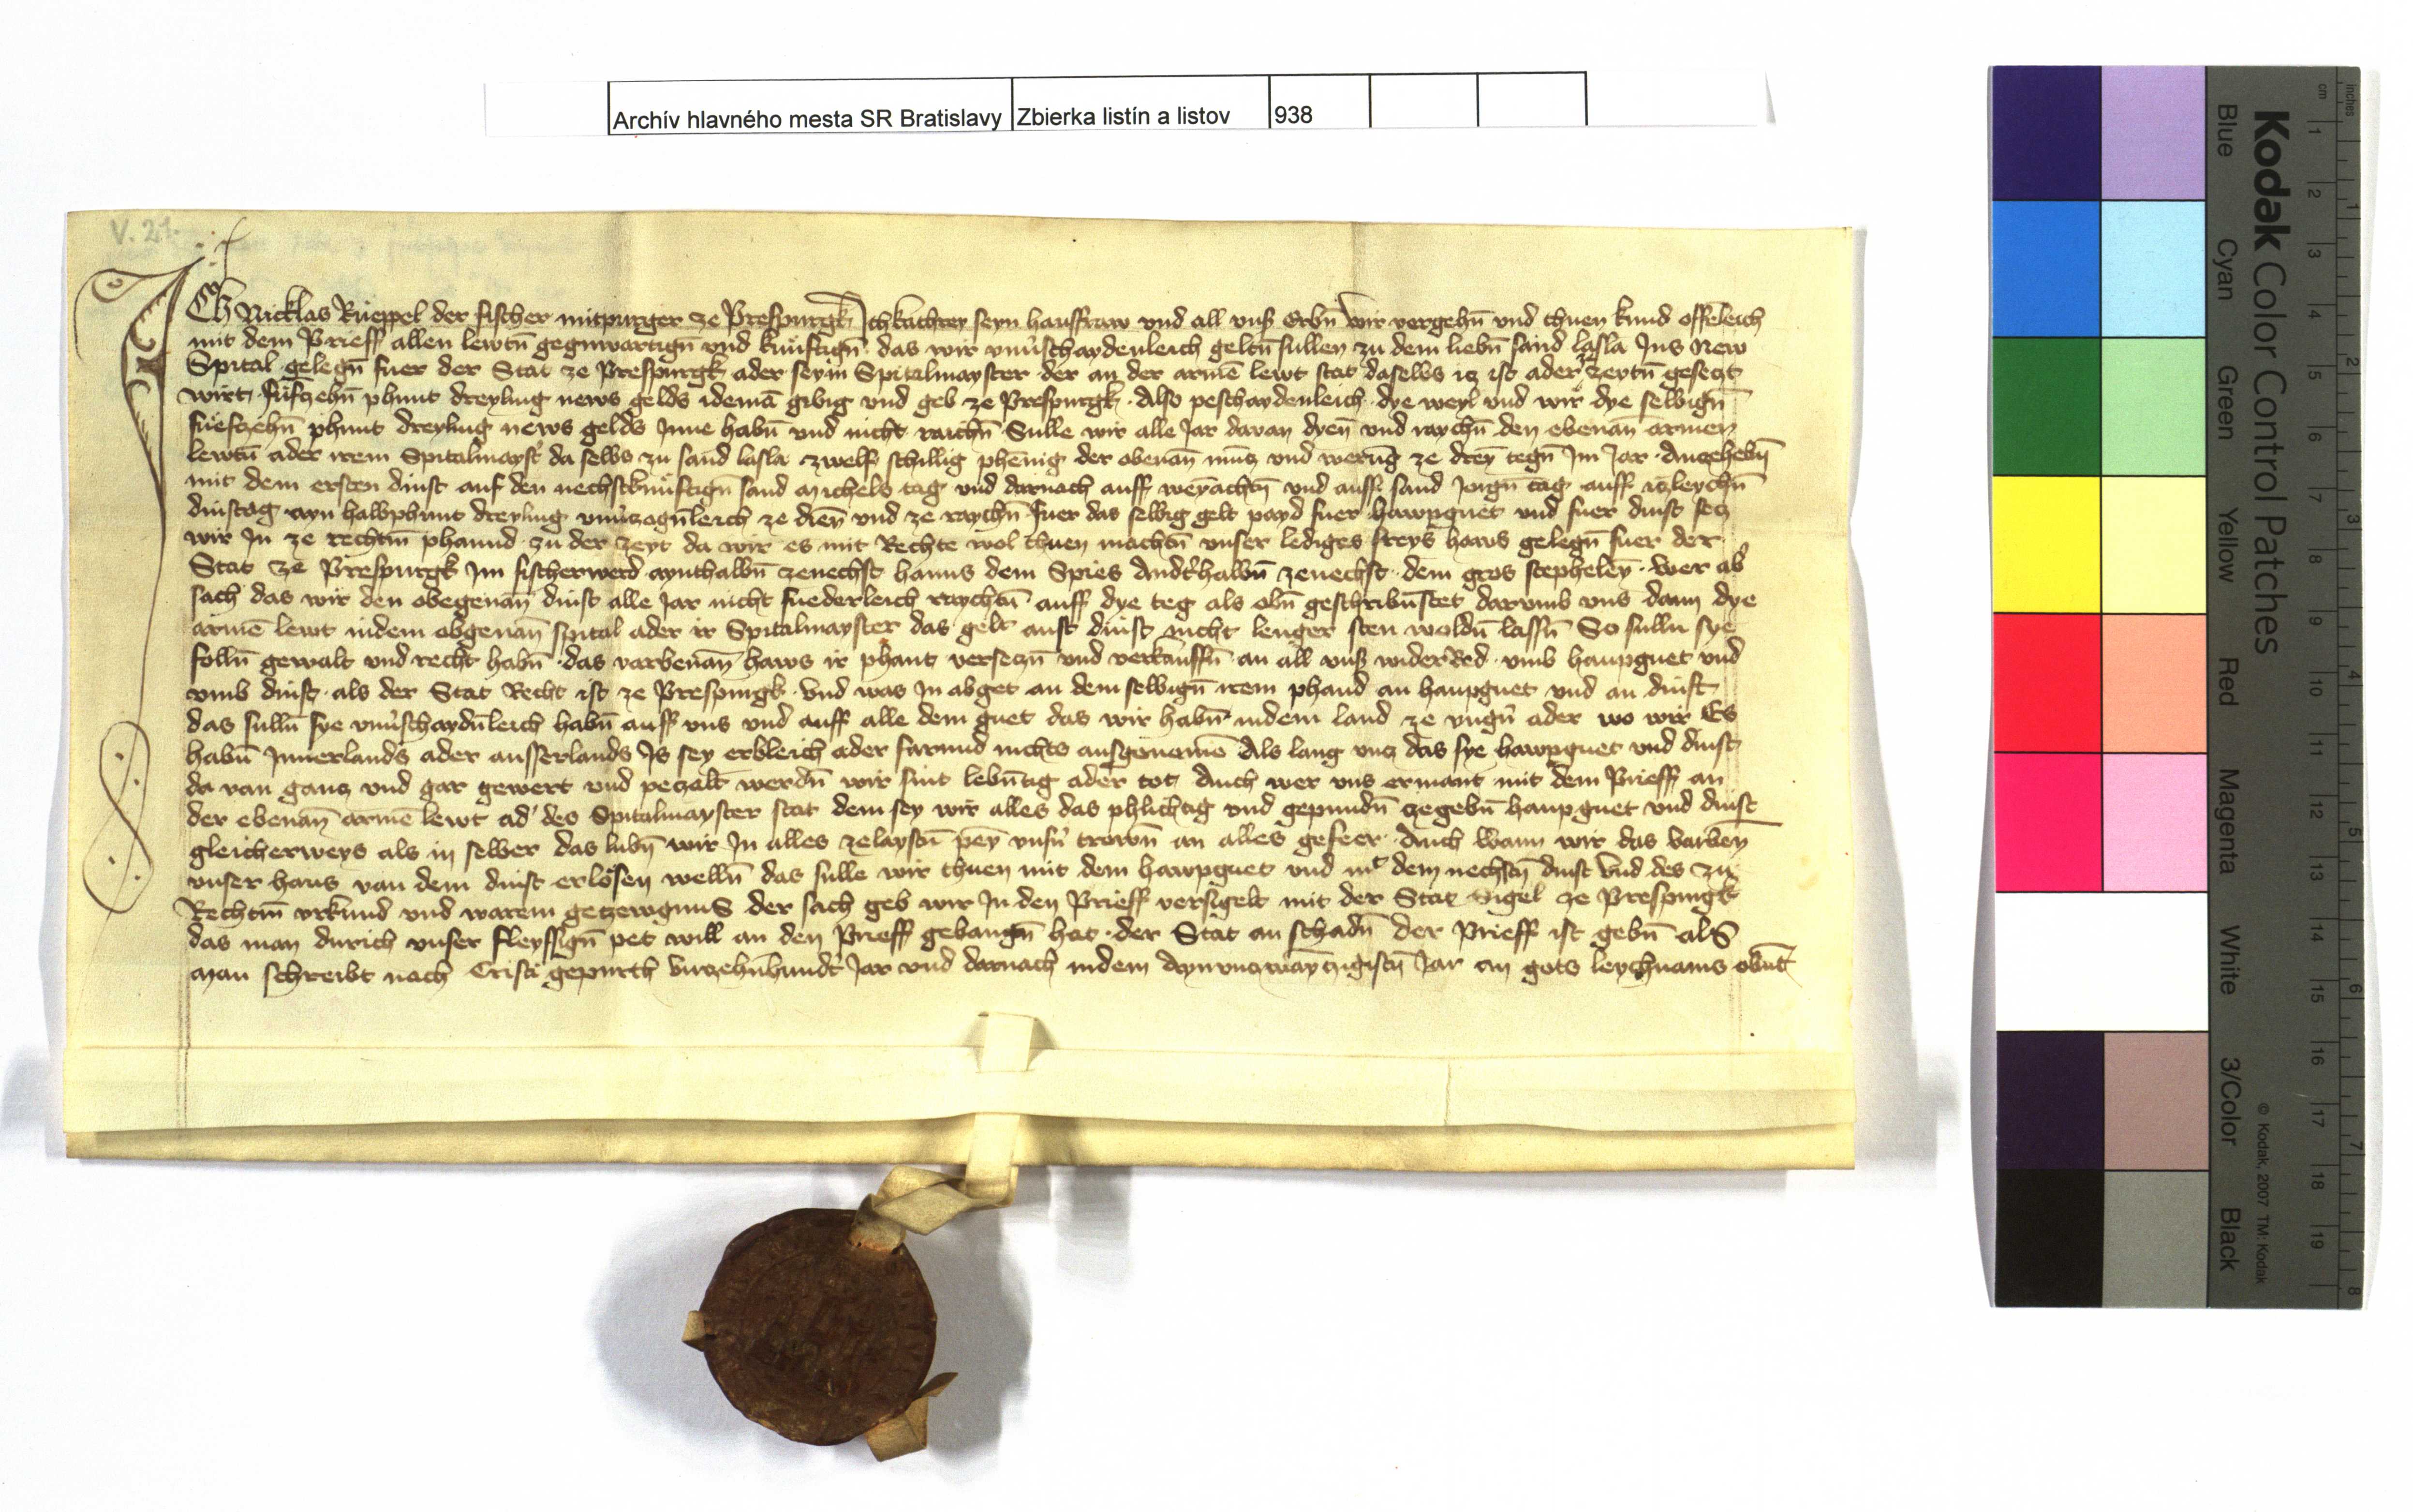 Archív hlavného mesta SR Bratislavy Zbierka listín a listov 938
V. 21.
Ich Nicklas Rueppel der fischer mitpurger ze Prespurgk Ich kathrey seyn hausfraw und all unß Erbn̄ wir vergehn̄ und thuen kund offēleich
mit dem Brieff allen lewtn̄ gegnwartign̄ und kunftign̄ das wir unu̇schaydenleich geltn̄ sullen zu dem liebn̄ sand lasla Ins New
Spital gelegn̄ fuer der Stat ze Prespurgk ader seym̄ Spitalmayster der an der armē lewt stat daselbs icz ist ader zeytn̄ geseczt
wirt funfczehn̄ phunt dreyling news gelds idemā gibig und geb ze Prespurgk Also peschaydenleich dye weyl und wir dye selbign̄
fuefczehn̄ phunt dreyling news gelds Inne habn̄ und nicht raichn̄ Sulle wir alle Jar davan dyen̄ und raychn̄ den ebenan̄ armen
lewtn̄ ader irem Spitalmayst' da selbs zu sand lasla zwelf schillig phenig der obenan̄ mūs und werūg ze drey tegn̄ Im Jar Anczehebn̄
mit dem ersten dinst auf den nechstkunftign̄ sand Michels tag und darnach auff weyachtn̄ und auff sand Jorgn̄ tag auff iczleychn̄
dinstag ayn halbphunt dreyling unu̇czogn̄leich ze dien̄ und ze raychn̄ Fuer das selbig gelt payd fuer hawpguet und fuer dinst secz
wir In ze rechtm̄ phannd zu der zeyt da wir es mit Rechte wol thuen machtn̄ unser lediges freys haws gelegn̄ fuer der
Stat ze Prespurgk Im fischerwerd aynthalbn̄ zenechst hanns dem Spies Andṙhalbn̄ zenechst dem gros stephelen̄ wer ab'
sach das wir den obegenan̄ dinst alle Jar nicht fuederleich raychtn̄ auff dye teg als obn̄ geschribn̄stet darumb uns dann dye
armē lewt indem obgenan̄ spital ader ir Spitalmayster das gelt aust dinst nicht lenger sten woldn̄ lassn̄ So sulln sye
folln̄ gewalt und recht habn̄ das varbenan̄ haws ir phant verseczn̄ und verkauffn̄ an all unß widerRed umb haupguet und
umb dinst als der Stat Recht ist ze Prespurgk Und was In abget an dem selbign̄ irem phand an haupguet und an dinst
das sulln̄ sye unu̇schaydn̄leich habn̄ auff uns und auff alle dem guet das wir habn̄ indem land ze ungn̄ ader wo wir Es
habn̄ Innerlands ader ausserlands Is sey erbleich ader farund nichts ausgenomē Als lang uncz das sye hawpguet und dinst
da van gancz und gar gewert und peczalt werdn̄ wir sint lebn̄tig ader tot Auch wer uns ermant mit dem Brieff an
der ebenan̄ armē lewt ad' des Spitalmayster stat dem sey wir alles das phlichtig und gepundn̄ czegebn̄ haupguet und dinst
gleicherweys als in selber das lubn̄ wir In alles zelaystn̄ pey unsn̄ trewn̄ an alles gefeer Auch Wann wir das varben̄
unser haus van dem dinst erlosen welln̄ das sulle wir thuen mit dem hawpguet und mit dem nechstn̄ dinst Und des zu
Rechtm̄ urkund und warem geczewgnus der sach geb wir In den Brieff versigelt mit der Stat sigel ze Prespurgk
das man durich unser fleyssign̄ pet will an den Brieff gehangn̄ hat der Stat an schadn̄ der Brieff ist gebn̄ als
man schreibt nach Cristi gepurth virczehn̄hundṫ Jar und darnach indem aynunczwayczigistn̄ Jar an gots leychnams abn̄t
Kodak Color Control Patches
© Kodak, 2007 TM: Kodak
Blue Cyan Green Yellow Red Magenta White 3/Color Black
cm 1 2 3 4 5 6 7 8 9 10 11 12 13 14 15 16 17 18 19
inches 1 2 3 4 5 6 7 8